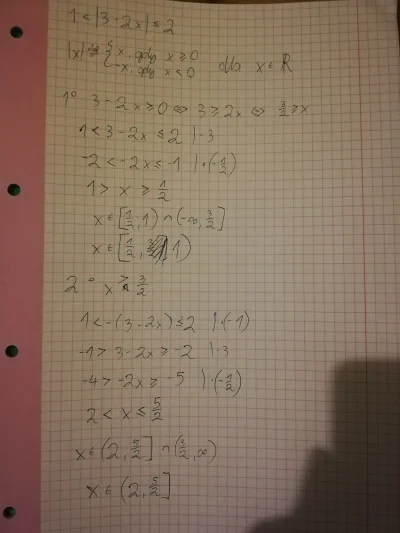 1 < |3 - 2x| ≤ 2
|x| = { x, gdy x ≥ 0
-x, gdy x < 0 dla x ∈ R
1° 3 - 2x ≥ 0 ⇔ 3 ≥ 2x ⇔ 3/2 ≥ x
1 < 3 - 2x ≤ 2 | -3
-2 < -2x ≤ -1 | ·(-1/2)
1 > x ≥ 1/2
x ∈ [1/2, 1) ∩ (-∞, 3/2]
x ∈ [1/2, 1)
2° x > 3/2
1 < -(3 - 2x) ≤ 2 | ·(-1)
-1 > 3 - 2x ≥ -2 | -3
-4 > -2x ≥ -5 | ·(-1/2)
2 < x ≤ 5/2
x ∈ (2, 5/2] ∩ (3/2, ∞)
x ∈ (2, 5/2]